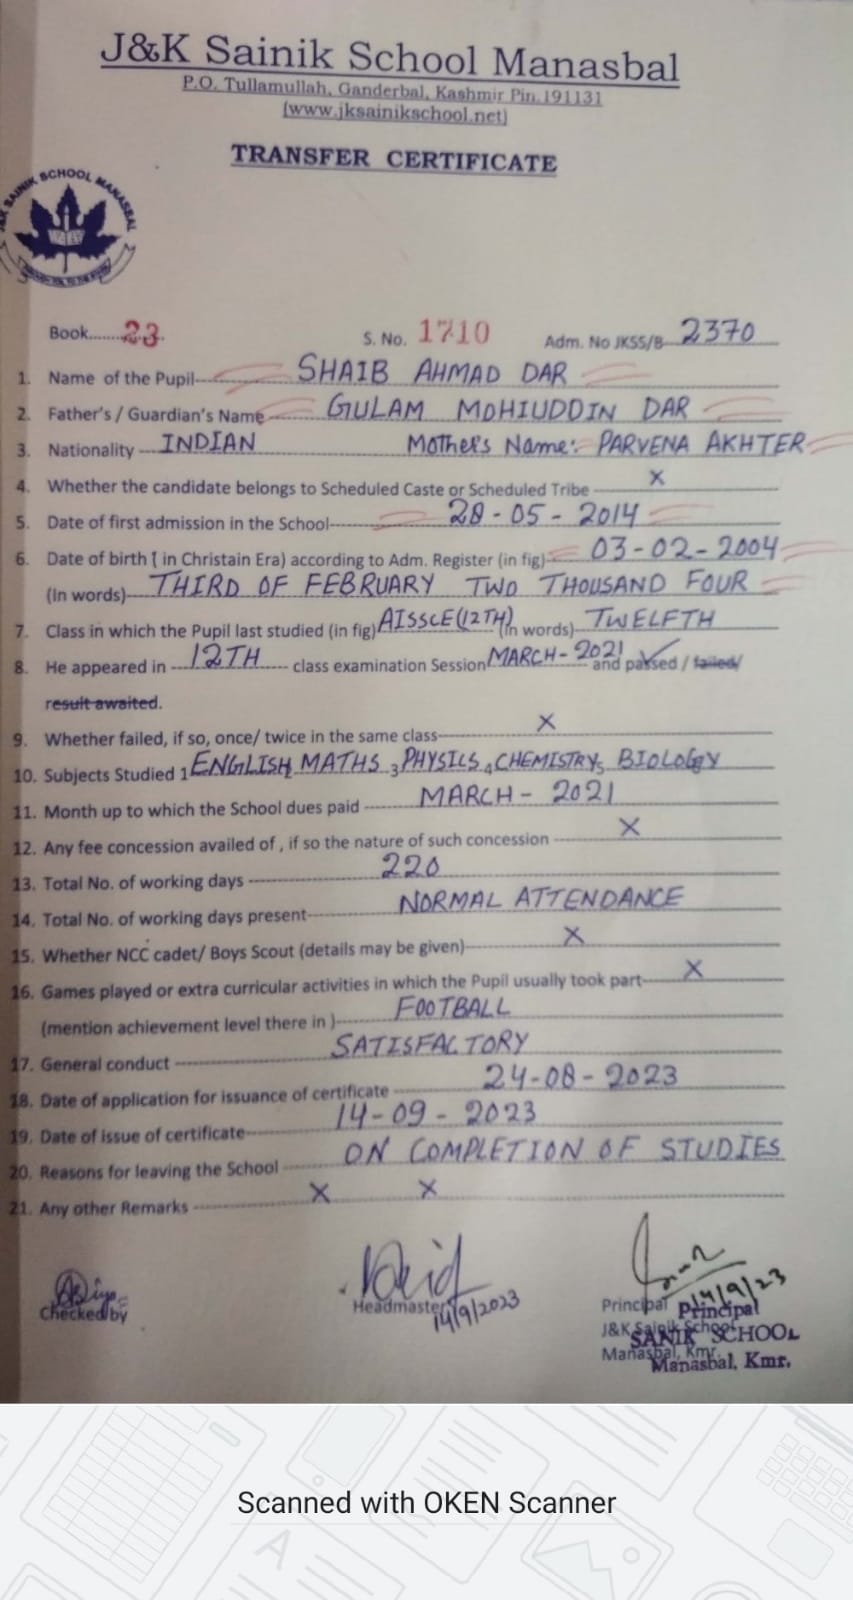 J&K Sainik School Manasbal
P.O. Tullamullah, Ganderbal, Kashmir Pin.191131
(www.jksainikschool.net)
TRANSFER CERTIFICATE
J&K SAINIK SCHOOL MANASBAL
Book.......23 S. No. 1710 Adm. No JKSS/B 2370
1. Name of the Pupil SHAIB AHMAD DAR
2. Father's / Guardian's Name GULAM MOHIUDDIN DAR
3. Nationality INDIAN Mother's Name: PARVENA AKHTER
4. Whether the candidate belongs to Scheduled Caste or Scheduled Tribe X
5. Date of first admission in the School 28-05-2014
6. Date of birth ( in Christain Era) according to Adm. Register (in fig) 03-02-2004
(In words) THIRD OF FEBRUARY TWO THOUSAND FOUR
7. Class in which the Pupil last studied (in fig) AISSCE (12TH) (in words) TWELFTH
8. He appeared in 12TH class examination Session MARCH-2021 and passed / failed/
result awaited.
9. Whether failed, if so, once/ twice in the same class X
10. Subjects Studied 1 ENGLISH 2 MATHS 3 PHYSICS 4 CHEMISTRY 5 BIOLOGY
11. Month up to which the School dues paid MARCH - 2021
12. Any fee concession availed of , if so the nature of such concession X
13. Total No. of working days 220
14. Total No. of working days present NORMAL ATTENDANCE
15. Whether NCC cadet/ Boys Scout (details may be given) X
16. Games played or extra curricular activities in which the Pupil usually took part X
(mention achievement level there in ) FOOTBALL
17. General conduct SATISFACTORY
18. Date of application for issuance of certificate 24-08-2023
19. Date of issue of certificate 14-09-2023
20. Reasons for leaving the School ON COMPLETION OF STUDIES
21. Any other Remarks X X
Checked by
Headmaster 14/9/2023
14/9/23
Principal Principal
J&K Sainik School SANIK SCHOOL
Manasbal, Kmr. Manasbal, Kmr.
Scanned with OKEN Scanner